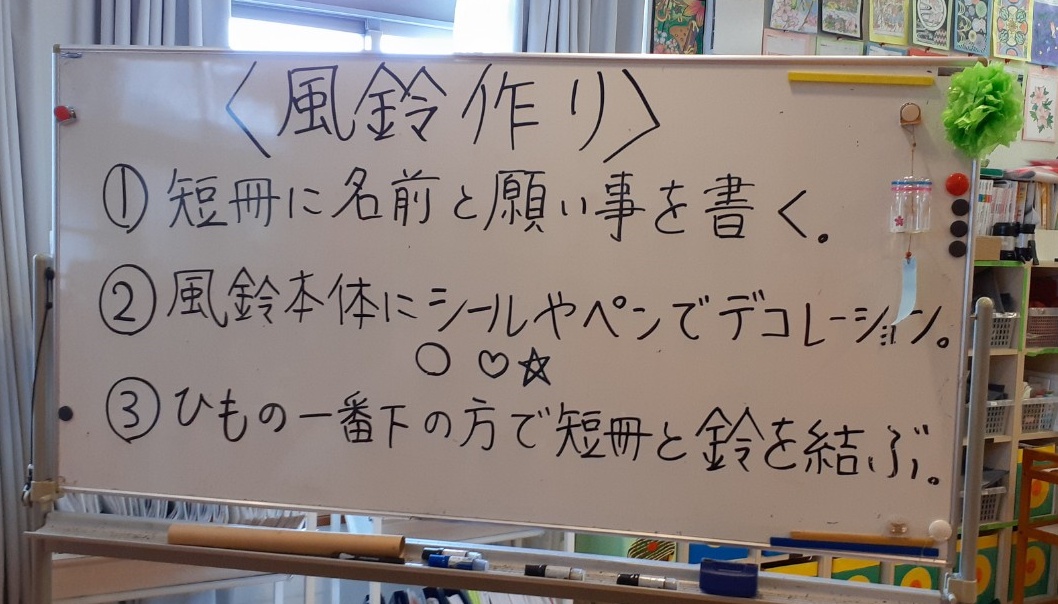 〈風鈴作り〉
①短冊に名前と願い事を書く。
②風鈴本体にシールやペンでデコレーション。
○ ♡☆
③ひもの一番下の方で短冊と鈴を結ぶ。